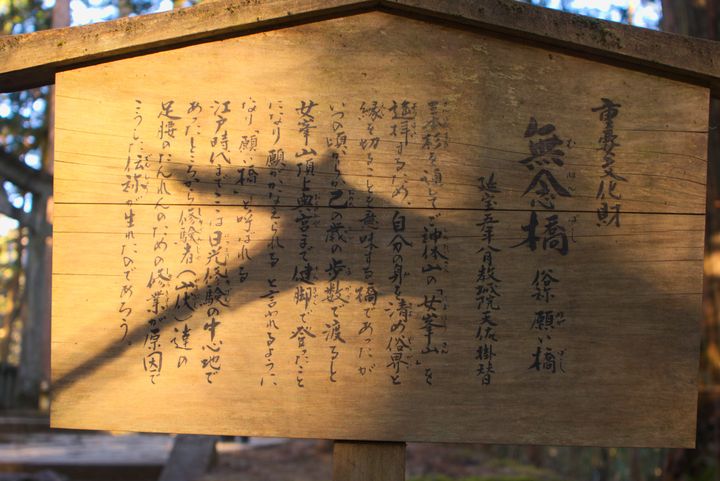 市重要文化財
無念橋 俗称 願い橋
むねんばし ねがいばし
延宝五年八月教城院天佑掛替
三本杉を通してご神体山の「女峯山」を
遥拝するため、自分の身を清め俗界と
縁を切ることを意味する橋であったが
いつの頃からか己の歳の歩数で渡ると
女峯山頂上奥宮まで健脚で登ったこと
になり願がかなえられると云われるように
なり「願い橋」と呼ばれる
江戸時代までここは日光修験の中心地で
あったところから修験者(山伏)達の
足腰のたんれんのための修業が原因で
こうした伝称が生れたのであろう。